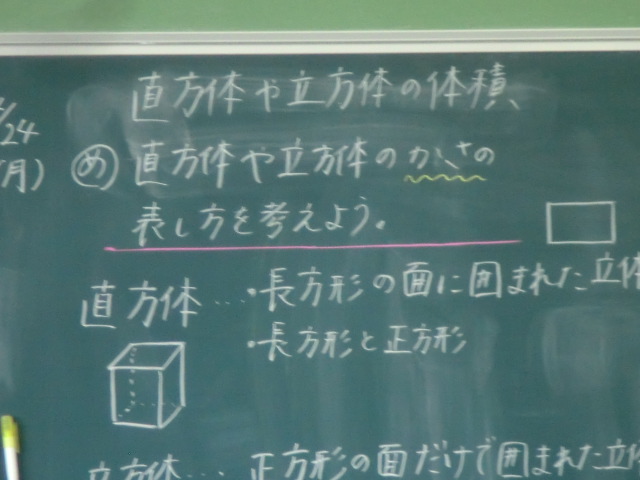 直方体や立方体の体積
/24
(月)
め 直方体や立方体のかさの
表し方を考えよう。
直方体…・長方形の面に囲まれた立体
・長方形と正方形
立方体… 正方形の面だけで囲まれた立体